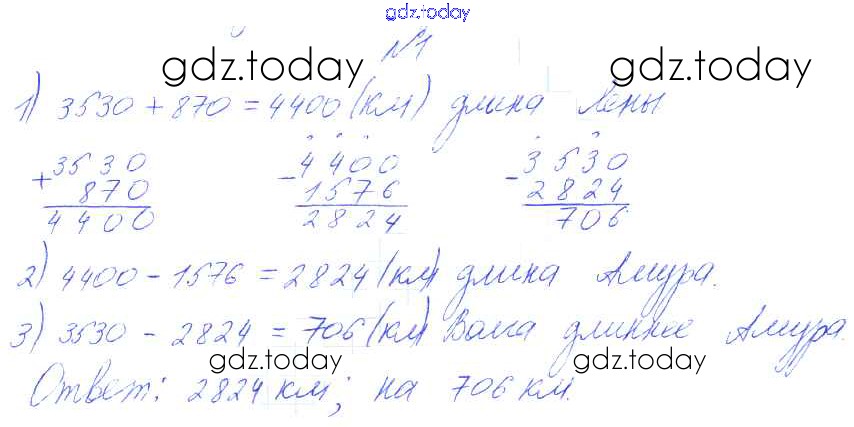 gdz.today
№1
gdz.today gdz.today
1) 3530 + 870 = 4400 (км) длина Лены
+ 3530 - 4400 - 3530
870 1576 2824
4400 2824 706
2) 4400 - 1576 = 2824 (км) длина Амура.
3) 3530 - 2824 = 706 (км) Волга длиннее Амура.
gdz.today gdz.today
Ответ: 2824 км; на 706 км.